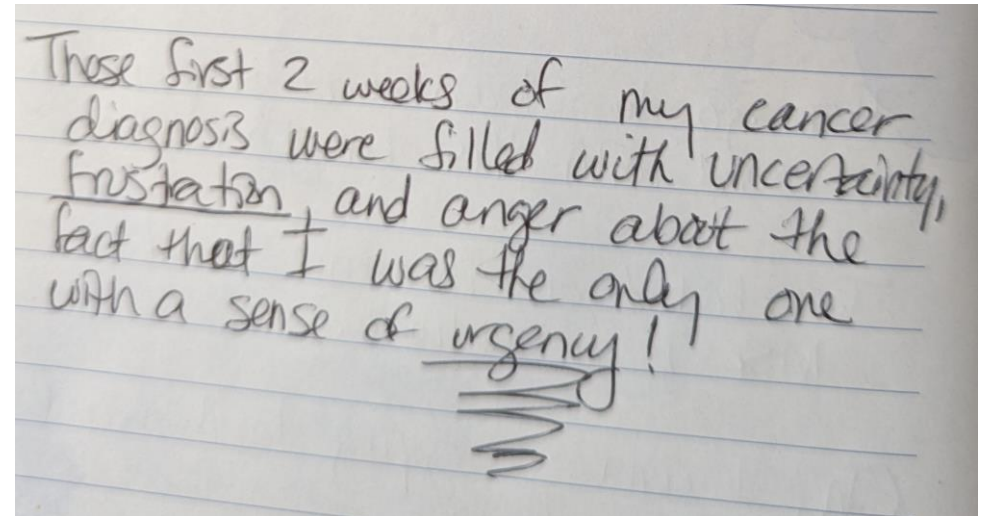 Those first 2 weeks of my cancer
diagnosis were filled with uncertainty,
frustration, and anger about the
fact that I was the only one
with a sense of urgency!